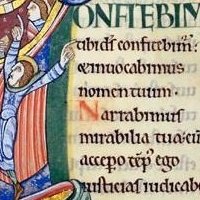 ONFITEBIM
tibi dſ confitebim᷑:
& inuocabimus
nomen tuum.
Narrabimus
mirabilia tua: cū
accepo tēp ego
iusticias iudicabo